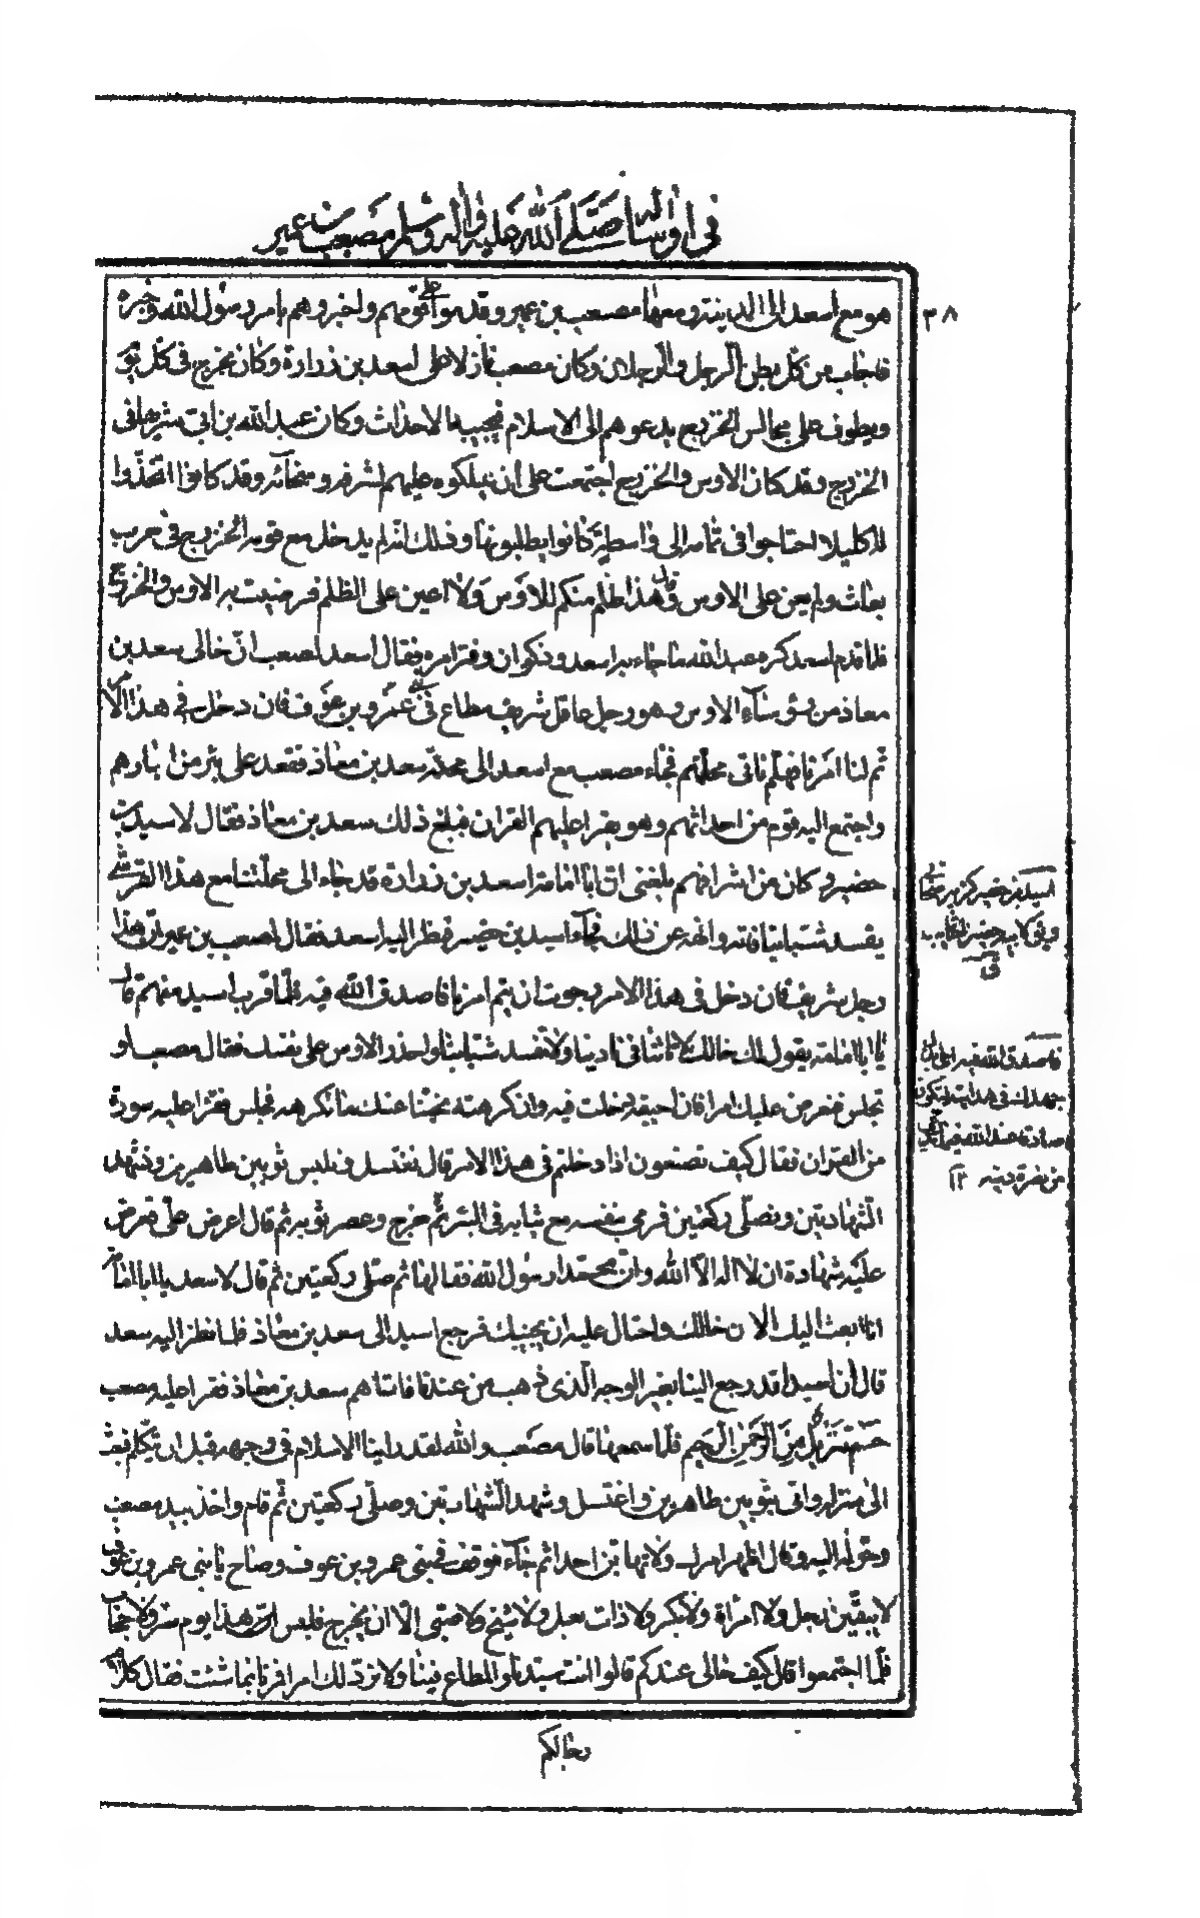 في ارساله صلّى الله عليه واله وسلم مصعب بن عمير
٣٨
هو مع اسعد الى المدينة ومعهما مصعب بن عمير وقدموا على قومهم واخبروهم بامر رسول الله وخبره
فاجاب من كلّ بطن الرجل والرجلان وكان مصعب نازلا على اسعد بن زرارة وكان يخرج في كلّ يوم
ويطوف على مجالس الخزرج يدعوهم الى الاسلام فيجيبه الاحداث وكان عبد الله بن ابيّ شريفا في
الخزرج وقد كان الاوس والخزرج اجتمعت على ان يملكوه عليهم لشرفه وسخائه وقد كانوا اتّخذوا
له اكليلا احتاجوا في تمامه الى واسطة كانوا يطلبونها وذلك انه لم يدخل مع قومه الخزرج في حرب
بعاث ولم يعن على الاوس وقال هذا ظلم منكم للاوس ولا اعين على الظلم فرضيت به الاوس والخزرج
فلما قدم اسعد كره عبد الله ما جاء به اسعد وذكوان وفتر امره فقال اسعد لمصعب انّ خالى سعد بن
معاذ من رؤساء الاوس وهو رجل عاقل شريف مطاع في بنى عمرو بن عوف فان دخل في هذا الامر
تم لنا امرنا فهلمّ ناتى محلّتهم فجاء مصعب مع اسعد الى محلّة سعد بن معاذ فقعد على بئر من ابارهم
واجتمع اليه قوم من احداثهم وهو يقرا عليهم القران فبلغ ذلك سعد بن معاذ فقال لاسيد بن
حضير وكان من اشرافهم بلغنى انّ ابا امامة اسعد بن زرارة قد جاء الى محلّتنا مع هذا القرشىّ
يفسد شبّاننا فاته وانهه عن ذلك فجاء اسيد بن حضير فنظر اليه اسعد فقال لمصعب بن عمير انّ هذا
رجل شريف فان دخل في هذا الامر رجوت ان يتم امرنا فاصدق الله فيه فلمّا قرب اسيد منهم قال
يا ابا امامة يقول لك خالك لا تاتنا في نادينا ولا تفسد شبّاننا واحذر الاوس على نفسك فقال مصعب او
تجلس فنعرض عليك امرا فان احببته دخلت فيه وان كرهته نحّينا عنك ما تكرهه فجلس فقرا عليه سورة
من القران فقال كيف تصنعون اذا دخلتم في هذا الامر قال نغتسل ونلبس ثوبين طاهرين ونشهد
الشهادتين ونصلّى ركعتين فرمى بنفسه مع ثيابه في البئر ثم خرج وعصر ثوبه ثم قال اعرض علىّ فعرض
عليه شهادة ان لا اله الّا الله وانّ محمّدا رسول الله فقالها ثم صلّى ركعتين ثم قال لاسعد يا ابا امامة
انا ابعث اليك الان خالك واحتال عليه ان يجيئك فرجع اسيد الى سعد بن معاذ فلما نظر اليه سعد
قال ان اسيدا قد رجع الينا بغير الوجه الّذى ذهب من عندنا فاتاهم سعد بن معاذ فقرا عليه مصعب
حم تنزيل من الرّحمن الرّحيم فلما سمعها قال مصعب والله لقد راينا الاسلام في وجهه قبل ان يتكلم فبعث
الى منزله واتى بثوبين طاهرين واغتسل وشهد الشهادتين وصلّى ركعتين ثم قام واخذ بيد مصعب
وحوّله اليه وقال اظهر امرك ولا تهابنّ احدا ثم جاء فوقف في بنى عمرو بن عوف وصاح يا بنى عمرو بن عوف
لا يبقينّ رجل ولا امرأة ولا بكر ولا ذات بعل ولا شيخ ولا صبى الّا ان يخرج فليس هذا يوم ستر ولا حجاب
فلما اجتمعوا قال كيف حالى عندكم قالوا انت سيّدنا والمطاع فينا ولا نردّ لك امرا فمرنا بما شئت فقال كلام
رجالكم
اسيد بن حضير كزبير صحابى
ق
فاصدق الله فيه اى
من نصرة دينه ١٢